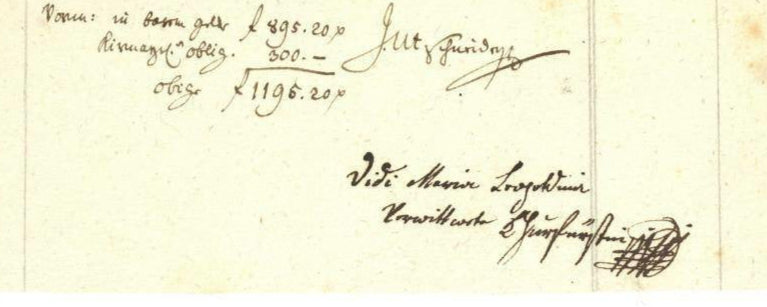 Vorm: in barem geld f 895.20 x
oblig. 300.—
obige f 1195.20 x
Vidi Maria Leopoldine
Verwittwete Churfürstin